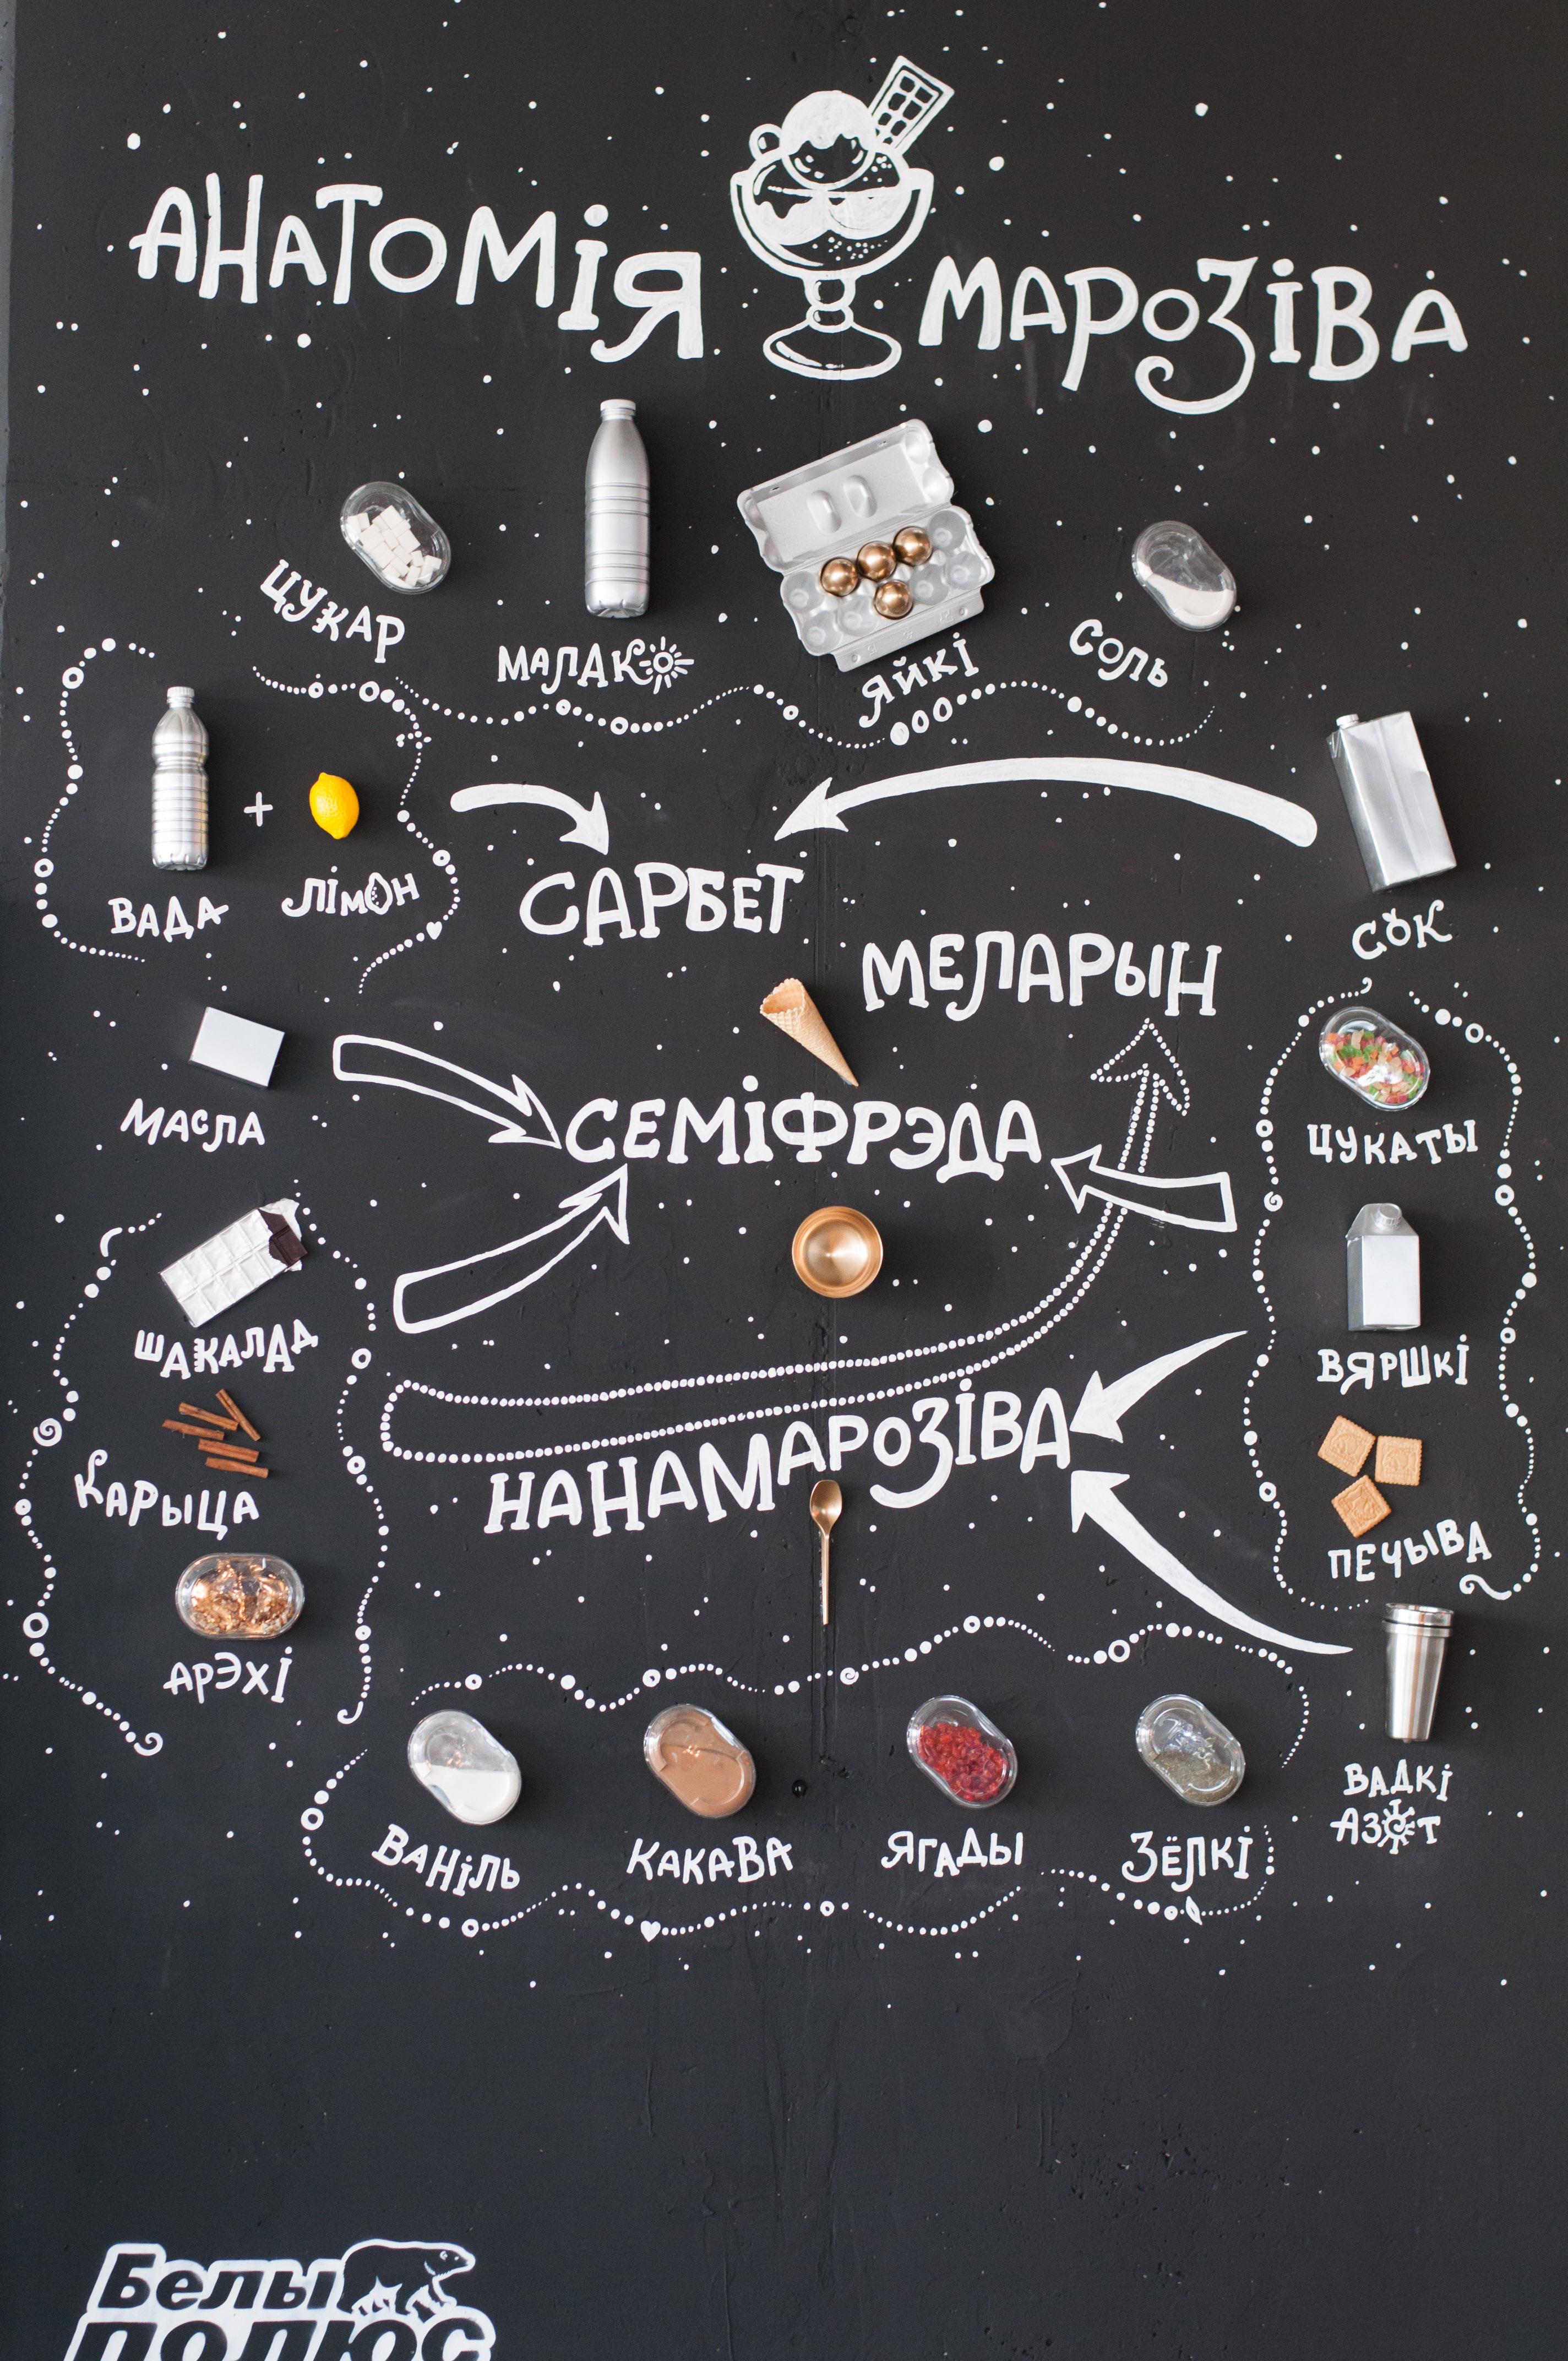 АНАТОМІЯ МАРОЗІВА
ЦУКАР
МАЛАКО
ЯЙКІ
СОЛЬ
+
ВАДА
ЛІМОН
САРБЕТ
СОК
МЕЛАРЫН
МАСЛА
СЕМІФРЭДА
ЦУКАТЫ
ШАКАЛАД
ВЯРШКІ
КАРЫЦА
НАНАМАРОЗІВА
ПЕЧЫВА
АРЭХІ
ВАНІЛЬ
КАКАВА
ЯГАДЫ
ЗЁЛКІ
ВАДКІ
АЗОТ
Белы
ПОЛЮС